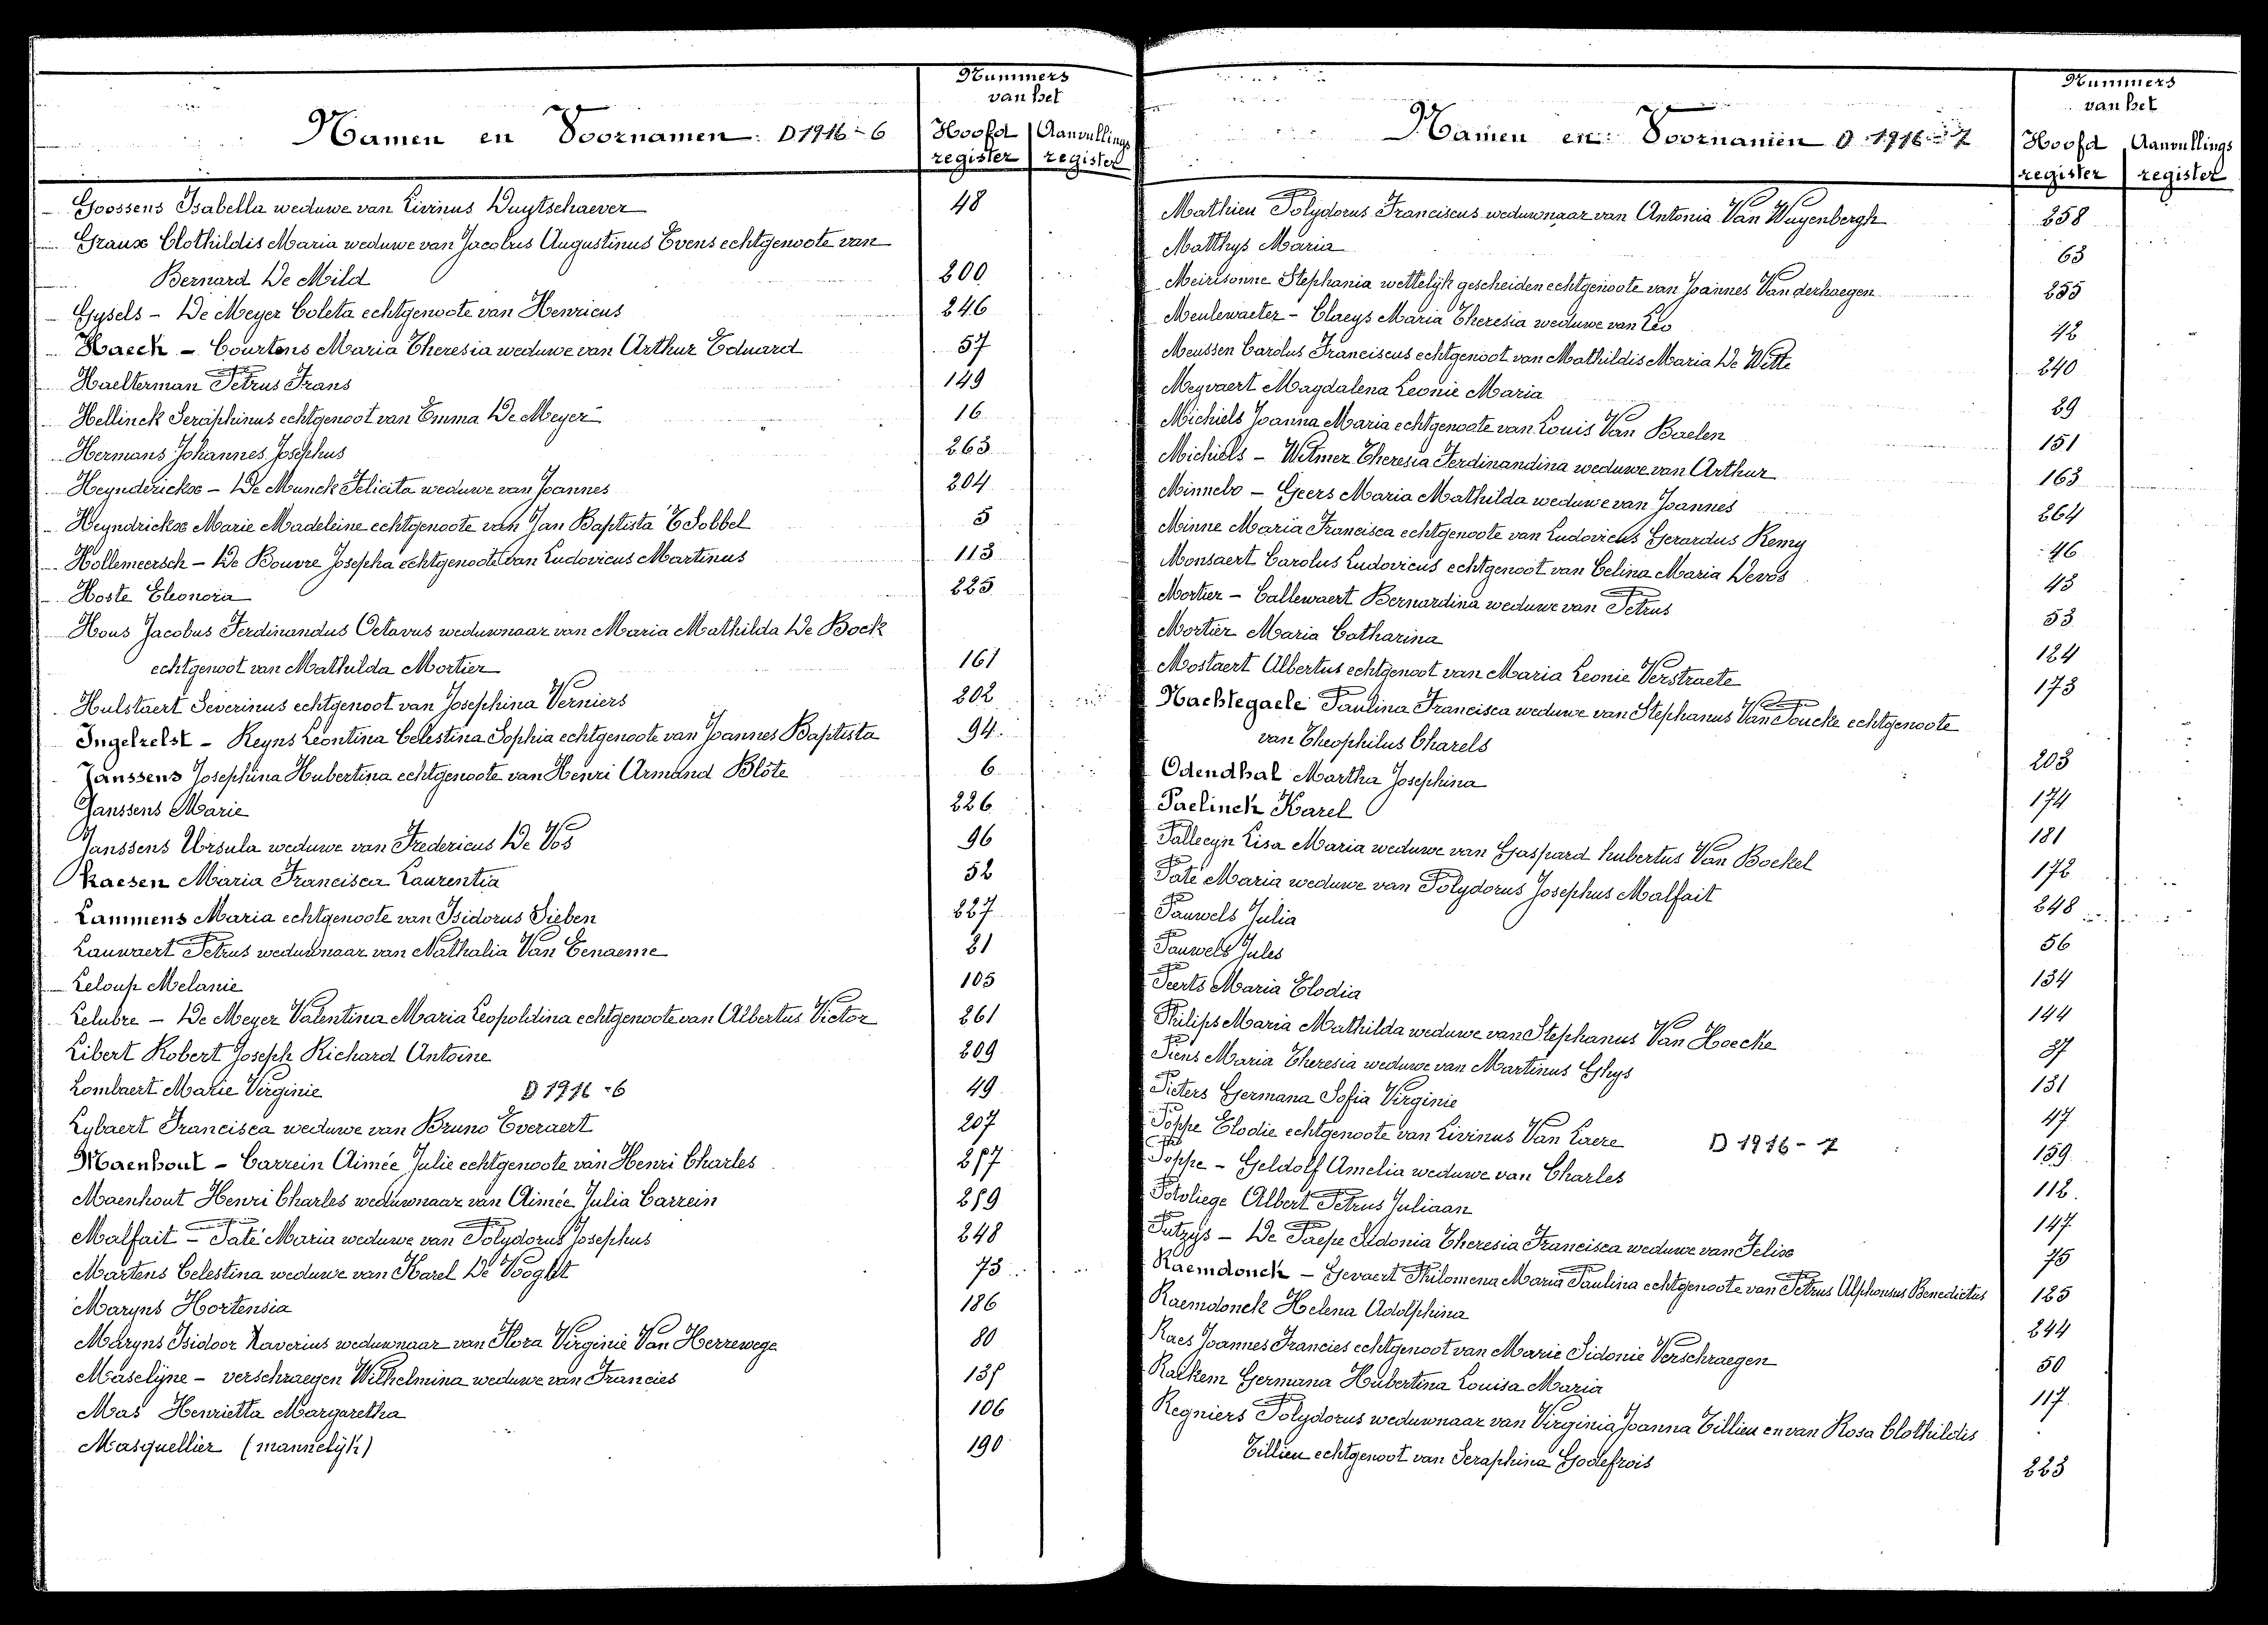 Nummers
van het
Namen en Voornamen D 1916 - 6
Hoofd register
Aanvullings register
Goossens Isabella weduwe van Livinus Duytschaever 48
Graux Clothildis Maria weduwe van Jacobus Augustinus Evens echtgenoote van
Bernard De Mild 200
Gysels - De Meyer Coleta echtgenoote van Henricus 246
Haeck - Courtens Maria Theresia weduwe van Arthur Eduard 57
Haelterman Petrus Frans 149
Hellinck Seraphinus echtgenoot van Emma De Meyer 16
Hermans Johannes Josephus 263
Heynderickx - De Munck Felicita weduwe van Joannes 204
Heyndrickx Marie Madeleine echtgenoote van Jan Baptista T'Sobbel 5
Hollemeersch - De Bouvre Josepha echtgenoote van Ludovicus Martinus 113
Hoste Eleonora 225
Hous Jacobus Ferdinandus Octavus weduwnaar van Maria Mathilda De Bock
echtgenoot van Mathilda Mortier 161
Hulstaert Severinus echtgenoot van Josephina Verniers 202
Ingelrelst - Reyns Leontina Celestina Sophia echtgenoote van Joannes Baptista 94
Janssens Josephina Hubertina echtgenoote van Henri Armand Blöte 6
Janssens Marie 226
Janssens Ursula weduwe van Fredericus De Vos 96
Kaesen Maria Francisca Laurentia 52
Lammens Maria echtgenoote van Isidorus Sieben 227
Lauwaert Petrus weduwnaar van Nathalia Van Eenaeme 21
Leloup Melanie 105
Lelubre - De Meyer Valentina Maria Leopoldina echtgenoote van Albertus Victor 261
Libert Robert Joseph Richard Antoine 209
Lombaert Marie Virginie D 1916 - 6 49
Lybaert Francisca weduwe van Bruno Everaert 207
Maenhout - Carrein Aimée Julie echtgenoote van Henri Charles 257
Maenhout Henri Charles weduwnaar van Aimée Julia Carrein 259
Malfait - Paté Maria weduwe van Polydorus Josephus 248
Martens Celestina weduwe van Karel De Vooght 73
Maryns Hortensia 186
Maryns Isidoor Xaverius weduwnaar van Flora Virginie Van Herrewege 80
Maselijne - verschraegen Wilhelmina weduwe van Francies 135
Mas Henrietta Margaretha 106
Masquellier (mannelijk) 190
Nummers
van het
Namen en Voornamen D 1916 - 7
Hoofd register
Aanvullings register
Mathieu Polydorus Franciscus weduwnaar van Antonia Van Wuyenbergh 258
Matthys Maria 63
Meirisonne Stephania wettelijk gescheiden echtgenoote van Joannes Vanderhaegen 255
Meulewaeter - Claeys Maria Theresia weduwe van Leo 42
Meussen Carolus Franciscus echtgenoot van Mathildis Maria De Witte 240
Meyvaert Magdalena Leonie Maria 29
Michiels Joanna Maria echtgenoote van Louis Van Baelen 151
Michiels - Witmer Theresia Ferdinandina weduwe van Arthur 163
Minnebo - Geers Maria Mathilda weduwe van Joannes 264
Minne Maria Francisca echtgenoote van Ludovicus Gerardus Remy 46
Monsaert Carolus Ludovicus echtgenoot van Celina Maria Devos 43
Mortier - Callewaert Bernardina weduwe van Petrus 53
Mortier Maria Catharina 124
Mostaert Albertus echtgenoot van Maria Leonie Verstraete 173
Nachtegaele Paulina Francisca weduwe van Stephanus Van Poucke echtgenoote
van Theophilus Charels 203
Odendhal Martha Josephina 174
Paelinck Karel 181
Pallecyn Lisa Maria weduwe van Gaspard hubertus Van Bockel 172
Paté Maria weduwe van Polydorus Josephus Malfait 248
Pauwels Julia 56
Pauwels Jules 134
Peerts Maria Elodia 144
Philips Maria Mathilda weduwe van Stephanus Van Hoecke 37
Piens Maria Theresia weduwe van Martinus Ghys 131
Pieters Germana Sofia Virginie 47
Poppe Elodie echtgenoote van Livinus Van Laere D 1916 - 7 159
Poppe - Geldolf Amelia weduwe van Charles 112
Potvliege Albert Petrus Juliaan 147
Putzijs - De Paepe Sidonia Theresia Francisca weduwe van Felix 75
Raemdonck - Gevaert Philomena Maria Paulina echtgenoote van Petrus Alphonsus Benedictus 125
Raemdonck Helena Adolphina 244
Raes Joannes Francies echtgenoot van Marie Sidonie Verschraegen 50
Raikem Germana Hubertina Louisa Maria 117
Regniers Polydorus weduwnaar van Virginia Joanna Tillieu en van Rosa Clothildis
Tillieu echtgenoot van Seraphina Godefrois 223